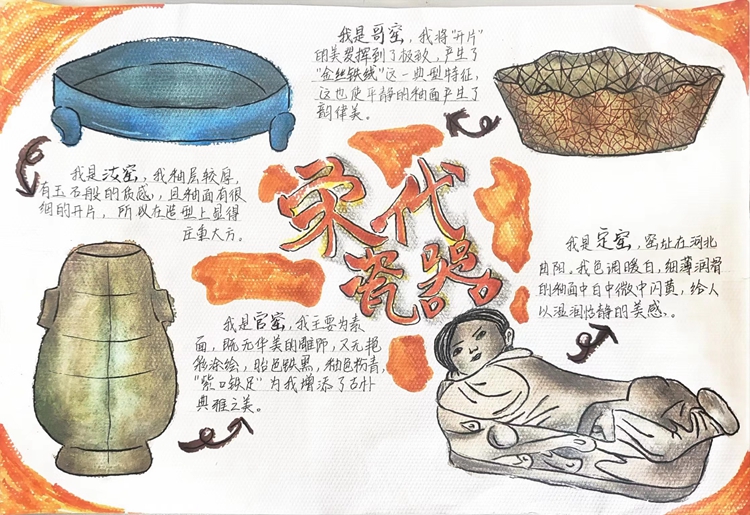 我是哥窑，我将“开片”
的美发挥到了极致，产生了
“金丝铁线”这一典型特征，
这也使平静的釉面产生了
韵律美。
我是汝窑，我釉层较厚，
有玉石般的质感，且釉面有很
细的开片，所以在造型上显得
庄重大方。
宋代
瓷器
我是定窑，窑址在河北
曲阳。我色调暖白，细薄润滑
的釉面中白中微中闪黄，给人
以温润恬静的美感。
我是官窑，我主要为素
面，既无华美的雕饰，又无艳
彩涂绘，胎色铁黑，釉色粉青，
“紫口铁足”为我增添了古朴
典雅之美。